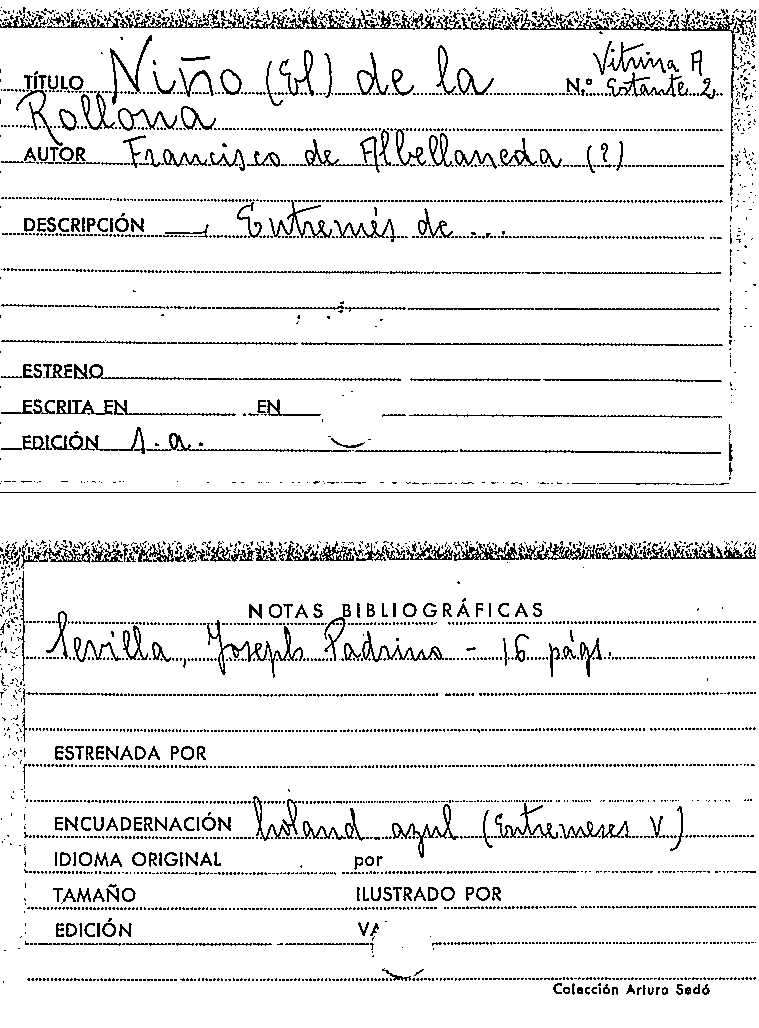 TÍTULO Niño (El) de la Vitrina A
N.º Estante 2
Rollona
AUTOR Francisco de Albellaneda (?)
DESCRIPCIÓN —, Entremés de ...
ESTRENO
ESCRITA EN EN
EDICIÓN s. a.
NOTAS BIBLIOGRÁFICAS
Sevilla, Joseph Padrino - 16 págs.
ESTRENADA POR
ENCUADERNACIÓN holand azul (Entremeses V)
IDIOMA ORIGINAL por
TAMAÑO ILUSTRADO POR
EDICIÓN
Colección Arturo Sedó